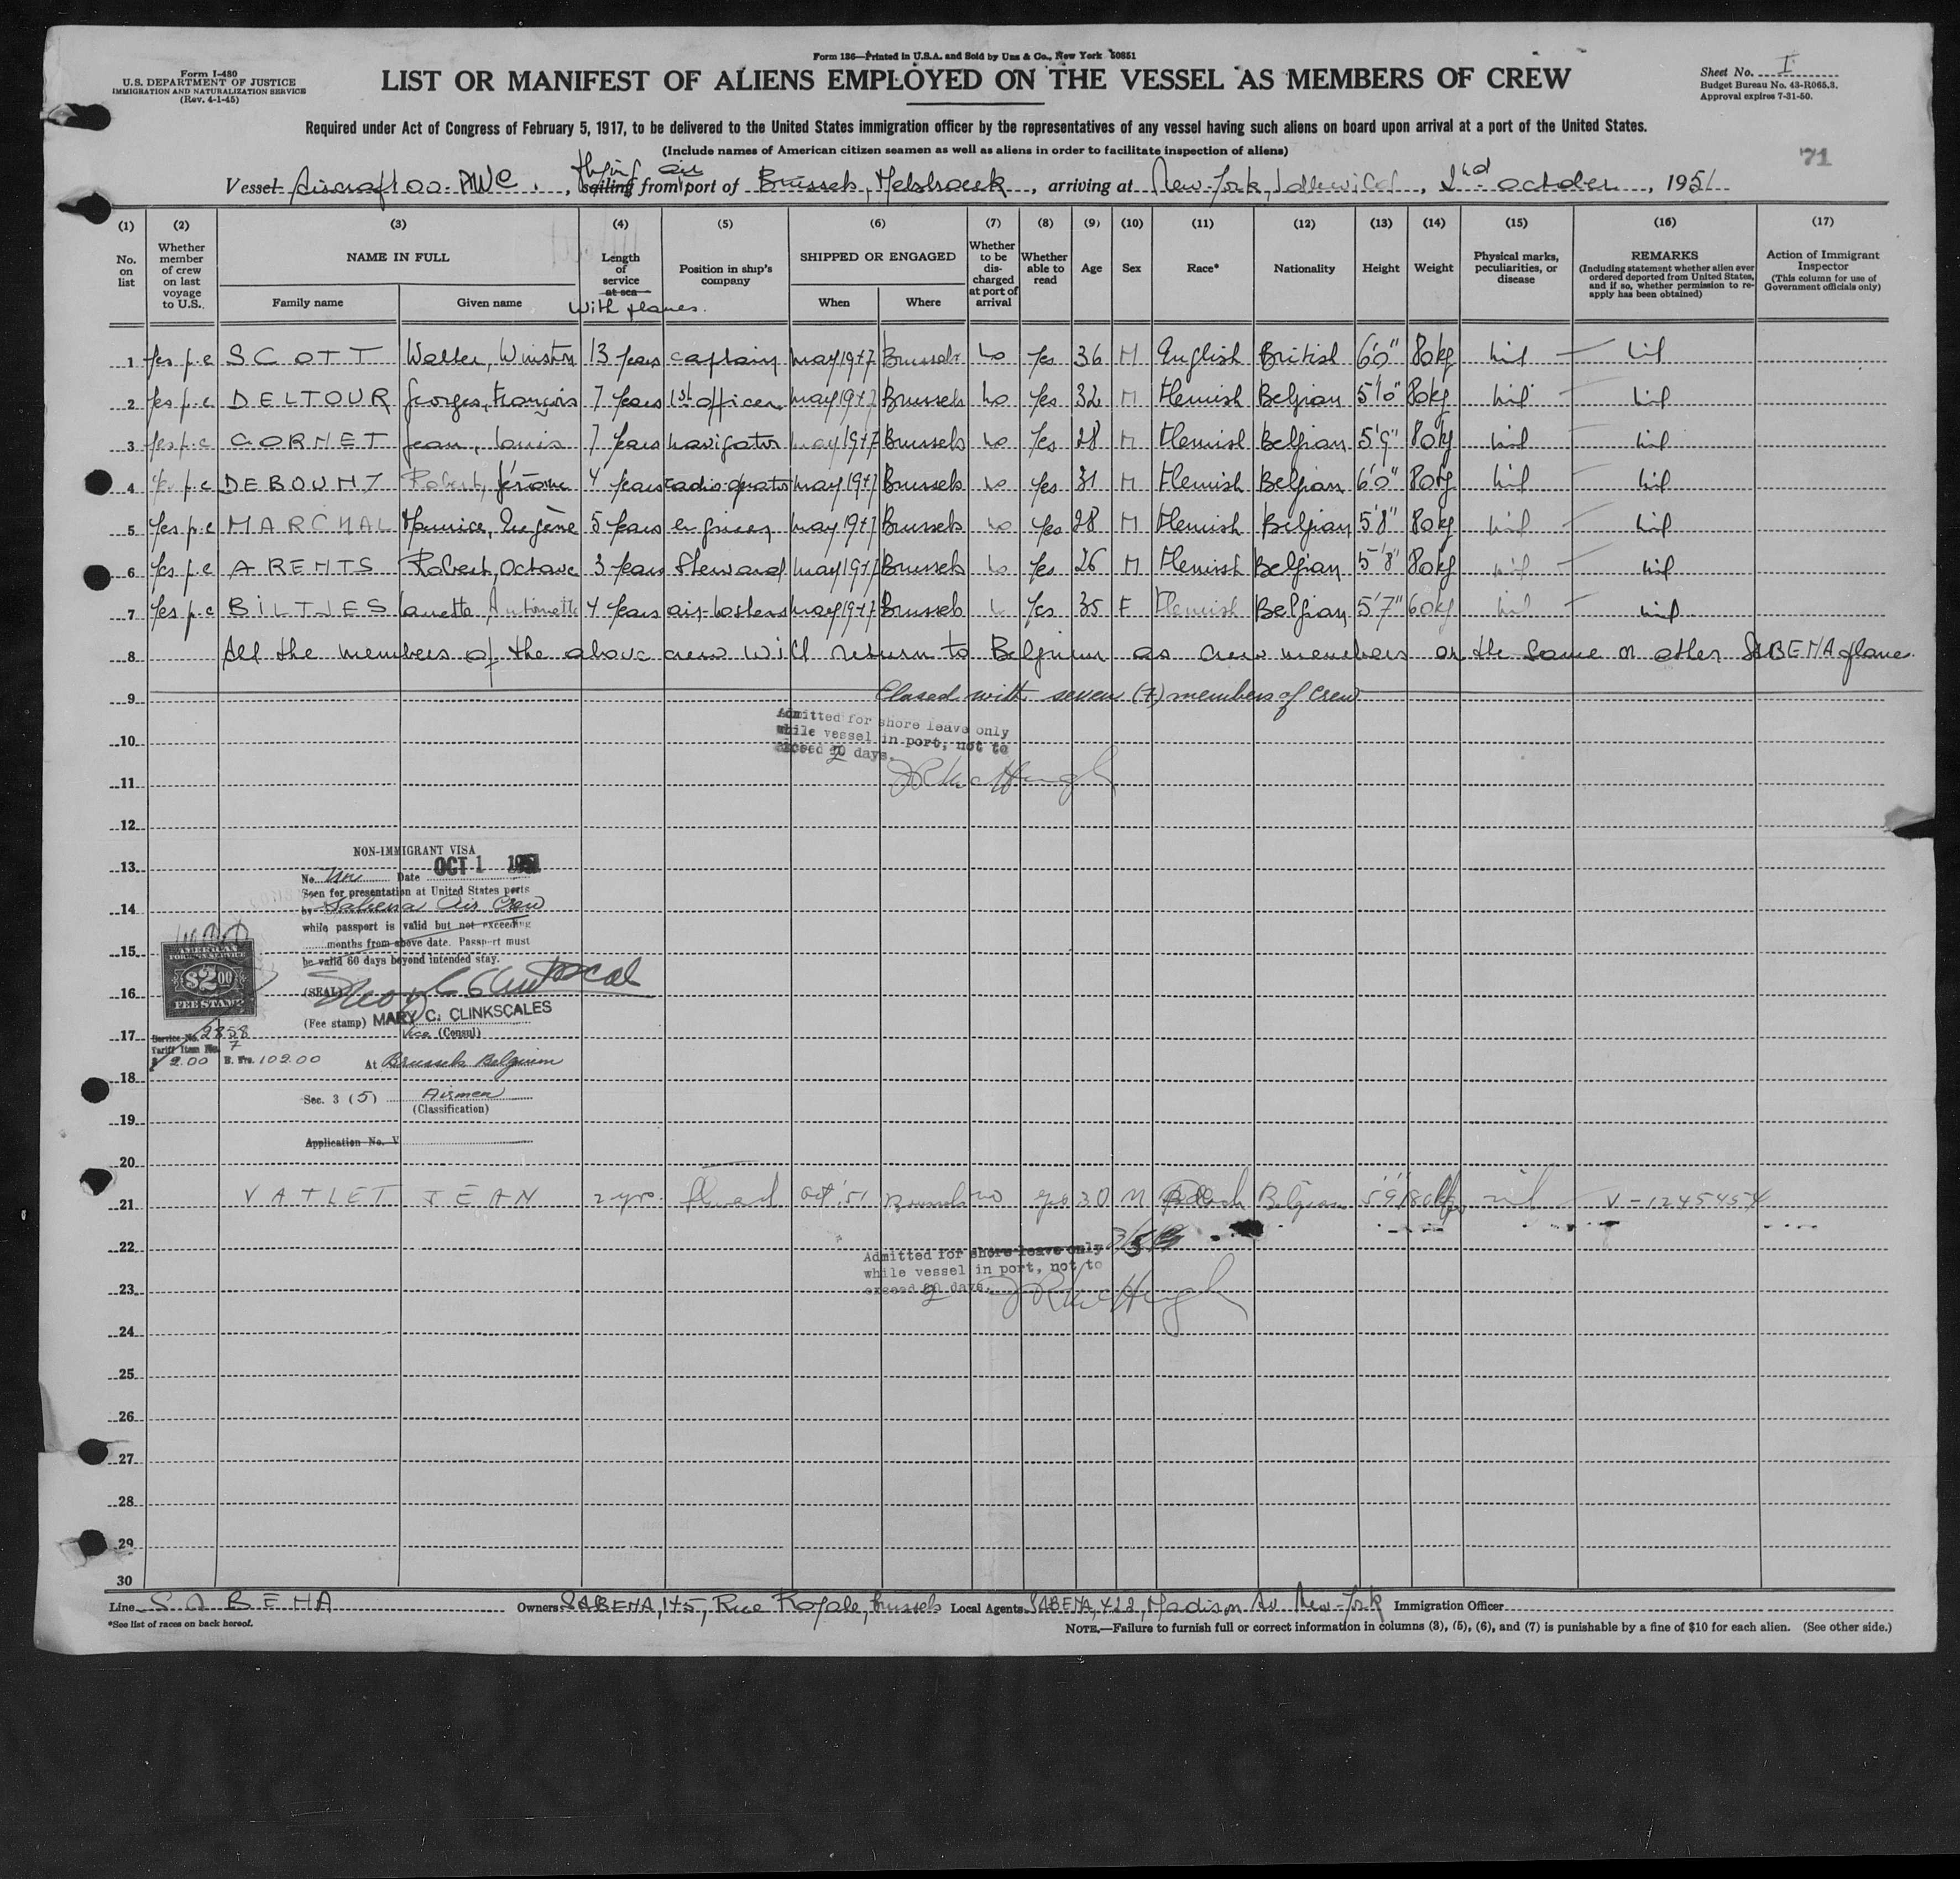 Form I-480
U.S. DEPARTMENT OF JUSTICE
IMMIGRATION AND NATURALIZATION SERVICE
(Rev. 4-1-45)
Form 136—Printed in U.S.A. and Sold by Unz & Co., New York 50851
LIST OR MANIFEST OF ALIENS EMPLOYED ON THE VESSEL AS MEMBERS OF CREW
Sheet No. I
Budget Bureau No. 43-R065.3.
Approval expires 7-31-50.
Required under Act of Congress of February 5, 1917, to be delivered to the United States immigration officer by the representatives of any vessel having such aliens on board upon arrival at a port of the United States.
(Include names of American citizen seamen as well as aliens in order to facilitate inspection of aliens)
71
Vessel Aircraft OO-AWC, sailing flying from air port of Brussels, Melsbroek, arriving at New-York, Idlewild, 2nd october, 1951
(1) (2) (3) (4) (5) (6) (7) (8) (9) (10) (11) (12) (13) (14) (15) (16) (17)
No. on list
Whether member of crew on last voyage to U.S.
NAME IN FULL
Family name
Given name
Length of service at sea
with planes.
Position in ship's company
SHIPPED OR ENGAGED
When
Where
Whether to be discharged at port of arrival
Whether able to read
Age
Sex
Race*
Nationality
Height
Weight
Physical marks, peculiarities, or disease
REMARKS
(Including statement whether alien ever ordered deported from United States, and if so, whether permission to reapply has been obtained)
Action of Immigrant Inspector
(This column for use of Government officials only)
1 yes p.c SCOTT Walter, Winston 13 years captain may 1947 Brussels No yes 36 M English British 6'0" 80kg nil nil
2 yes p.c DELTOUR Georges, François 7 years 1st officer may 1947 Brussels No yes 32 M Flemish Belgian 5'10" 80kg nil nil
3 yes p.c CORNET Jean, Louis 7 years navigator may 1947 Brussels No yes 28 M Flemish Belgian 5'9" 80kg nil nil
4 yes p.c Robert, Jérôme 4 years radio-operator may 1947 Brussels No yes 31 M Flemish Belgian 6'0" 80kg nil nil
5 yes p.c MARCHAL Maurice, Eugène 5 years engineer may 1947 Brussels No yes 28 M Flemish Belgian 5'8" 80kg nil nil
6 yes p.c ARENTS Robert, Octave 3 years Steward may 1947 Brussels No yes 26 M Flemish Belgian 5'8" 80kg nil nil
7 yes p.c BILTJES Antoinette 4 years air-hostess may 1947 Brussels yes 35 F Flemish Belgian 5'7" 60kg nil nil
8 All the members of the above crew will return to Belgium as crew members on the same or other SABENA plane.
9 Closed with seven (7) members of crew
Admitted for shore leave only
10 while vessel in port, not to
exceed 2 days.
11 J R McHugh
12
NON-IMMIGRANT VISA
13
No. Date OCT 1 1951
Seen for presentation at United States ports
14 by Sabena Air Crew
while passport is valid but not exceeding
months from above date. Passport must
15 be valid 60 days beyond intended stay.
AMERICAN FOREIGN SERVICE
$2.00
FEE STAMP
16 (SEAL)
(Fee stamp) MARY C. CLINKSCALES
Vice (Consul)
17 Service No. 2858
Tariff Item No. 7
$ 2.00 B. Frs. 102.00
At Brussels Belgium
18
Sec. 3 (5) Airmen
(Classification)
19
Application No. V
20
21 VATLET JEAN 2 yrs. Steward Oct '51 Brussels no yes 30 M Belgian 5'9" nil V-1245454
22
Admitted for shore leave only
while vessel in port, not to
23 exceed 2 days. J R McHugh
24
25
26
27
28
29
30
Line SABENA Owners SABENA, 145, Rue Royale, Brussels Local Agents SABENA, 422, Madison Av New-York Immigration Officer
*See list of races on back hereof.
NOTE.—Failure to furnish full or correct information in columns (3), (5), (6), and (7) is punishable by a fine of $10 for each alien. (See other side.)